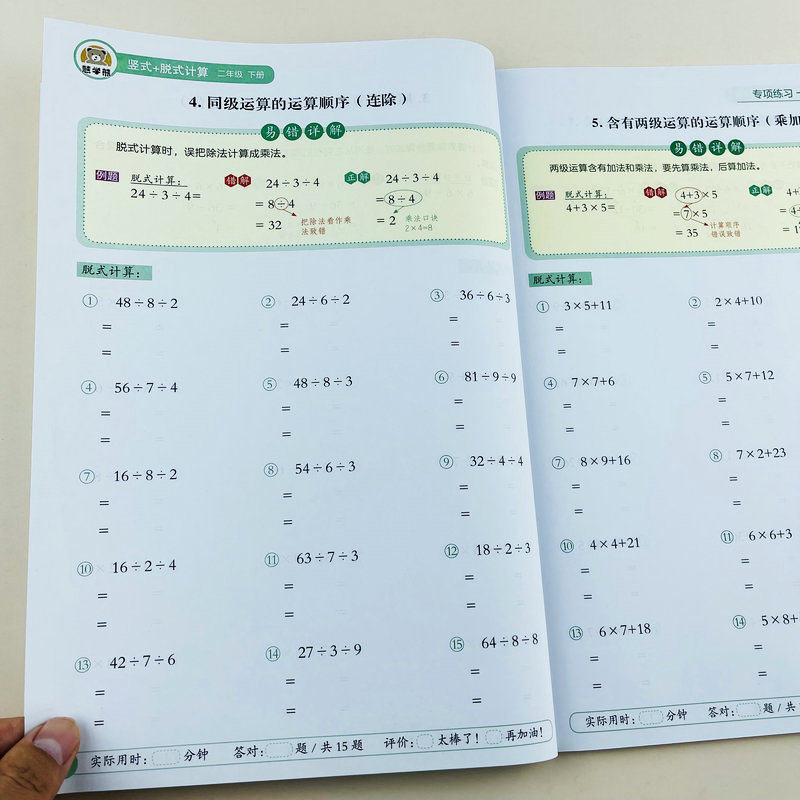 慧学熊
竖式+脱式计算 二年级 下册
4. 同级运算的运算顺序（连除）
易错详解
脱式计算时，误把除法计算成乘法。
例题 脱式计算：
24÷3÷4=
错解 24÷3÷4
=8÷4
=32
把除法看作乘
法致错
正解 24÷3÷4
=8÷4
=2
乘法口诀
2×4=8
脱式计算：
① 48÷8÷2 ② 24÷6÷2 ③ 36÷6÷3
= = =
= = =
④ 56÷7÷4 ⑤ 48÷8÷3 ⑥ 81÷9÷9
= = =
= = =
⑦ 16÷8÷2 ⑧ 54÷6÷3 ⑨ 32÷4÷4
= = =
= = =
⑩ 16÷2÷4 ⑪ 63÷7÷3 ⑫ 18÷2÷3
= = =
= = =
⑬ 42÷7÷6 ⑭ 27÷3÷9 ⑮ 64÷8÷8
= = =
= = =
实际用时： 分钟 答对： 题/共15题 评价： 太棒了！ 再加油！
专项练习
5. 含有两级运算的运算顺序（乘加
易错详解
两级运算含有加法和乘法，要先算乘法，后算加法。
例题 脱式计算：
4+3×5=
错解 4+3×5
=7×5
=35
计算顺序
错误致错
正解 4+
=4+
=1
脱式计算：
① 3×5+11 ② 2×4+10
= =
= =
④ 7×7+6 ⑤ 5×7+12
= =
= =
⑦ 8×9+16 ⑧ 7×2+23
= =
= =
⑩ 4×4+21 ⑪ 6×6+3
= =
= =
⑬ 6×7+18 ⑭ 5×8+
= =
= =
实际用时： 分钟 答对： 题/共